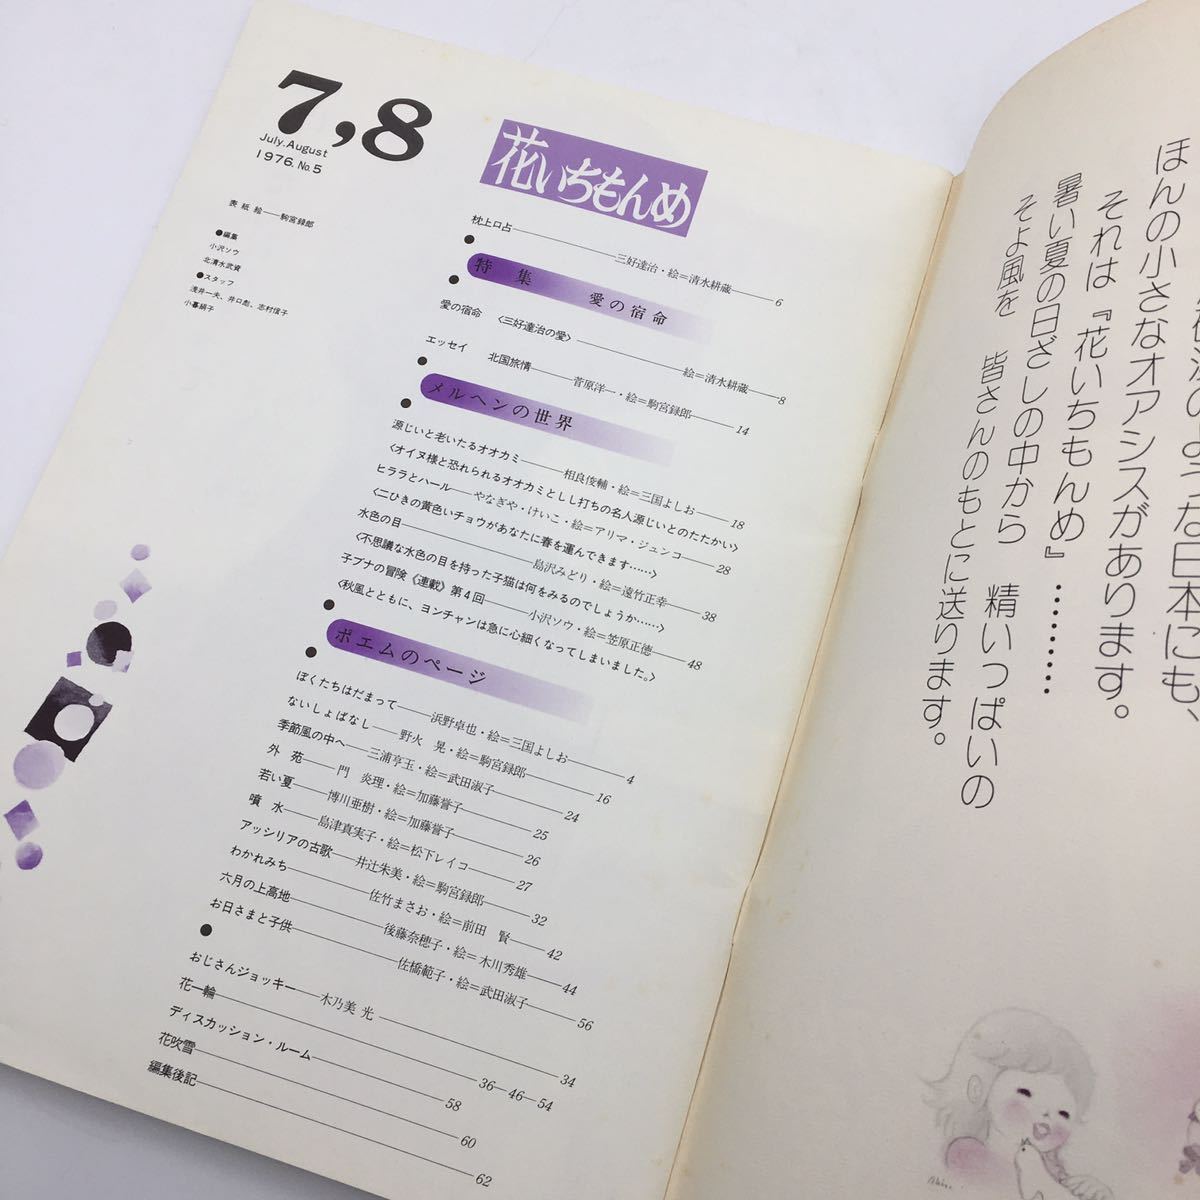 7,8
July.August
1976.No.5
花いちもんめ
表紙絵──駒宮録郎
●編集
小沢ソウ
北清水武資
●スタッフ
浅井一夫、井口彪、志村信子
小暮絹子
枕上口占──三好達治・絵=清水耕蔵──6
特集 愛の宿命
愛の宿命 〈三好達治の愛〉──絵=清水耕蔵──8
エッセイ 北国旅情──菅原洋一・絵=駒宮録郎──14
メルヘンの世界
源じいと老いたるオオカミ──相良俊輔・絵=三国よしお──18
〈オイヌ様と恐れられるオオカミとしし打ちの名人源じいとのたたかい〉
ヒララとハール──やなぎや・けいこ・絵=アリマ・ジュンコ──28
〈二ひきの黄色いチョウがあなたに春を運んできます……〉
水色の目──島沢みどり・絵=遠竹正幸──38
〈不思議な水色の目を持った子猫は何をみるのでしょうか……〉
子ブナの冒険《連載》第4回──小沢ソウ・絵=笠原正徳──48
〈秋風とともに、ヨンチャンは急に心細くなってしまいました。〉
ポエムのページ
ぼくたちはだまって──浜野卓也・絵=三国よしお──4
ないしょばなし──野火 晃・絵=駒宮録郎──16
季節風の中へ──三浦亨玉・絵=武田淑子──24
外苑──門 炎理・絵=加藤誉子──25
若い夏──博川亜樹・絵=加藤誉子──26
噴水──島津真実子・絵=松下レイコ──27
アッシリアの古歌──井辻朱美・絵=駒宮録郎──32
わかれみち──佐竹まさお・絵=前田 賢──42
六月の上高地──後藤奈穂子・絵=木川秀雄──44
お日さまと子供──佐橋範子・絵=武田淑子──56
おじさんジョッキー──木乃美 光──34
花一輪──36─46─54
ディスカッション・ルーム──58
花吹雪──60
編集後記──62
のような日本にも、
ほんの小さなオアシスがあります。
それは『花いちもんめ』………
暑い夏の日ざしの中から 精いっぱいの
そよ風を 皆さんのもとに送ります。